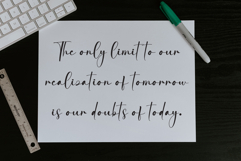 The only limit to our
realization of tomorrow
is our doubts of today.